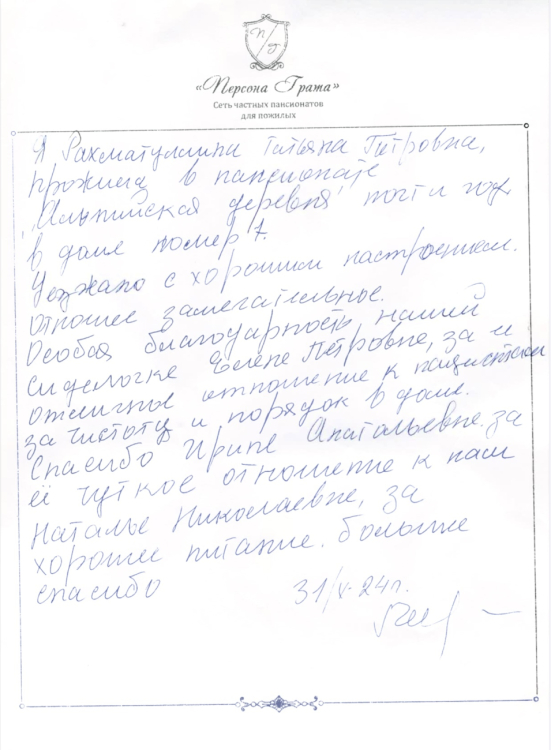 П Г
«Персона Грата»
Сеть частных пансионатов
для пожилых
Я Рахматуллина Татьяна Петровна,
прожила в пансионате
"Альпийская деревня" почти год,
в доме номер 7.
Уезжаю с хорошим настроением.
Отношее замечательное.
Особая благодарность нашей
сиделочке Елене Петровне, за ее
отличное отношение к пациентам
за чистоту и порядок в доме.
Спасибо Ирине Анатольевне за
её чуткое отношение к нам
Наталье Николаевне, за
хорошее питание. большое
спасибо
31/V-24г.